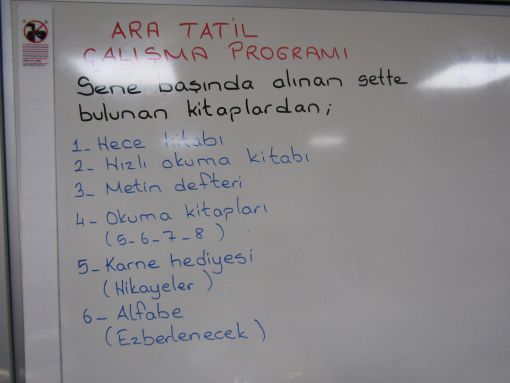 ARA TATİL
ÇALIŞMA PROGRAMI
Sene başında alınan sette
bulunan kitaplardan;
1- Hece kitabı
2- Hızlı okuma kitabı
3- Metin defteri
4- Okuma kitapları
(5-6-7-8)
5- Karne hediyesi
(Hikayeler)
6- Alfabe
(Ezberlenecek)